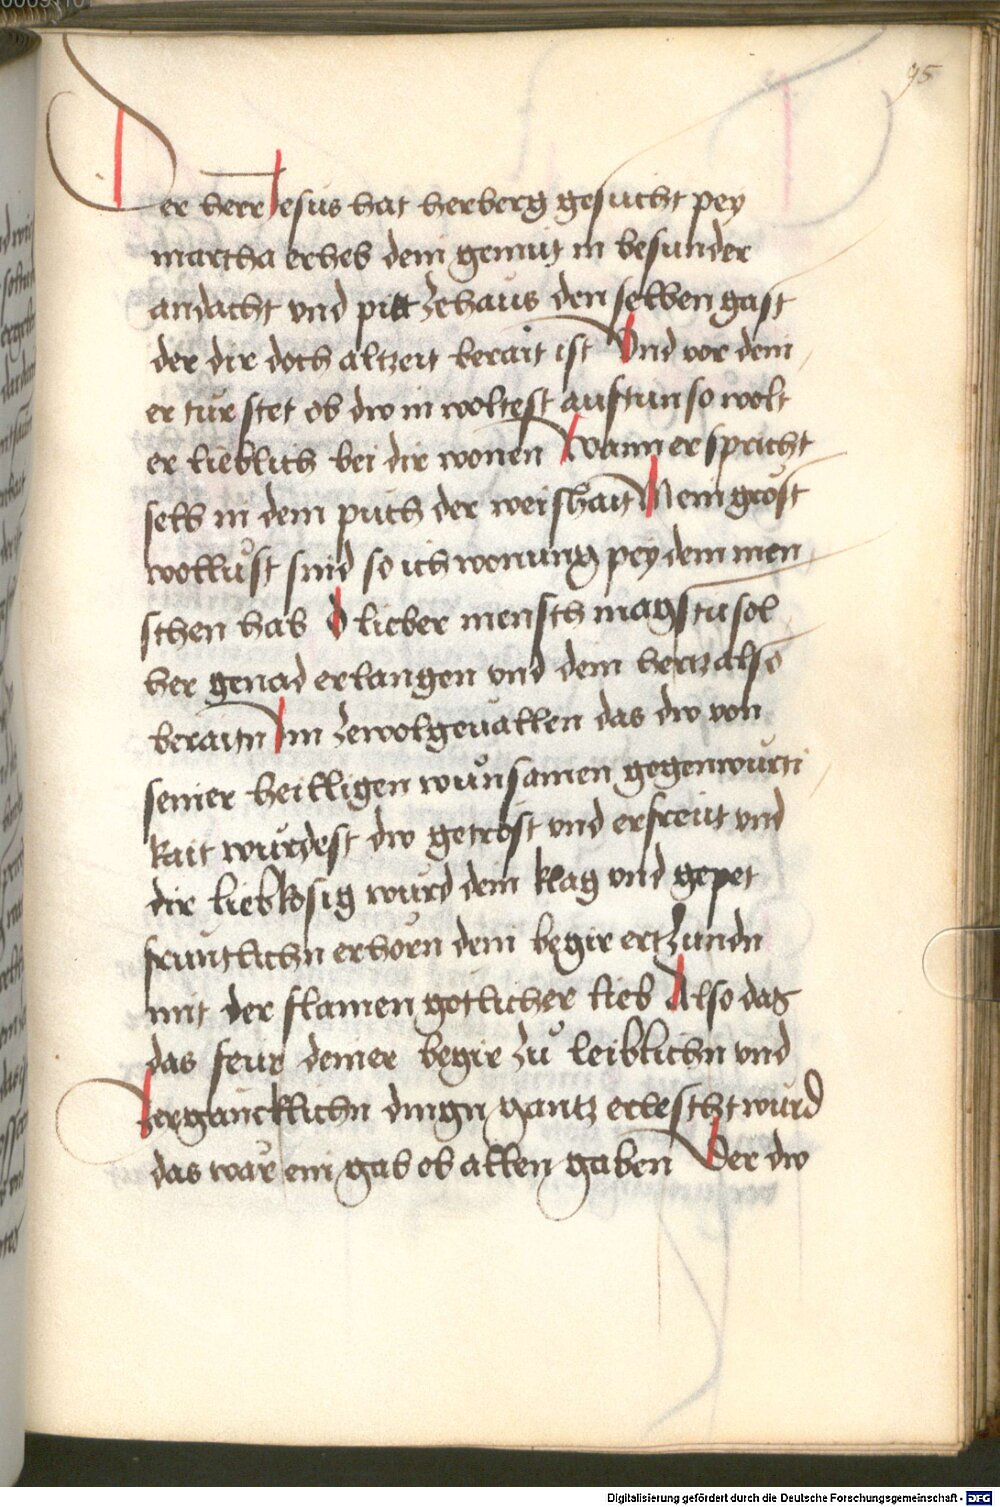 95
Der herr Jesus hat herberg gesucht pey
martha erheb dein gemüt in besunder
andacht vnd pitt zehaus den selben gast
der dir doch altzeit berait ist Vnd vor dem
er tür stet ob dw in woltest auftun so wolt
er lieblich bei dir wonen Wann er spricht
selb in dem puch der weishait Mein gröst
wollust sind so ich wonung pey dem men
schen hab O lieber mensch magstu sol
her genad erlangen vnd dem hertz also
beraitn Im zewolgeuallen das dw von
seiner heilligen wunsamen gegenwurti
kait würdest dw getröst vnd erfreut vnd
dir liebkosig wurd dein klag vnd gepet
fruntlichn erhörn dein begir ertzundn
mit der flamen gotlicher lieb Also das
das feur deiner begir zu leiblichn vnd
zergäncklichn dingn gantz erlescht wurd
das wär ein gab ob allen gaben Der dw
Digitalisierung gefördert durch die Deutsche Forschungsgemeinschaft - DFG